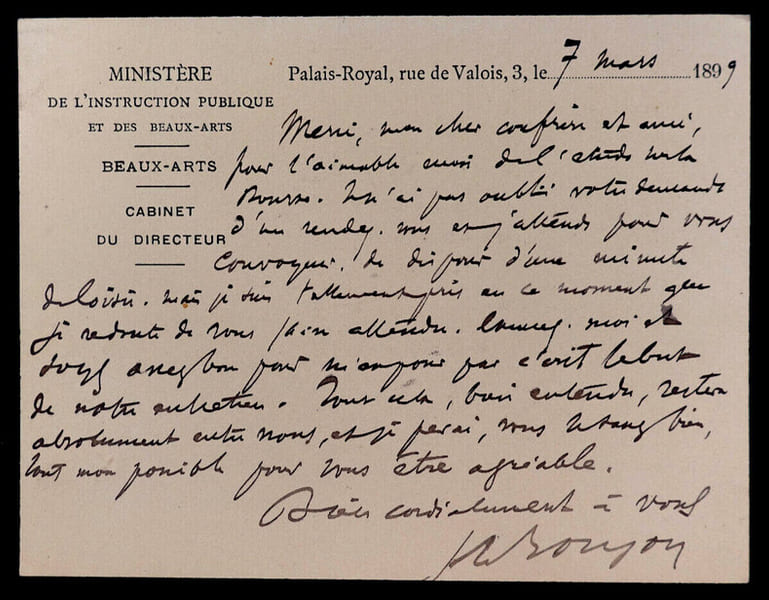 MINISTÈRE
DE L'INSTRUCTION PUBLIQUE
ET DES BEAUX-ARTS
BEAUX-ARTS
CABINET
DU DIRECTEUR
Palais-Royal, rue de Valois, 3, le 7 mars 1899
Merci, mon cher confrère et ami,
pour l'aimable envoi de l'étude sur la
Bourse. Je n'ai pas oublié votre demande
d'un rendez-vous et j'attends pour vous
convoquer, de disposer d'une minute
de loisir. Mais je suis tellement pris en ce moment que
je redoute de vous faire attendre. Ecrivez-moi et
soyez assez bon pour m'exposer par écrit le but
de notre entretien. Tout cela, bien entendu, restera
absolument entre nous, et je ferai, vous le savez bien,
tout mon possible pour vous être agréable.
Bien cordialement à vous
Roujon